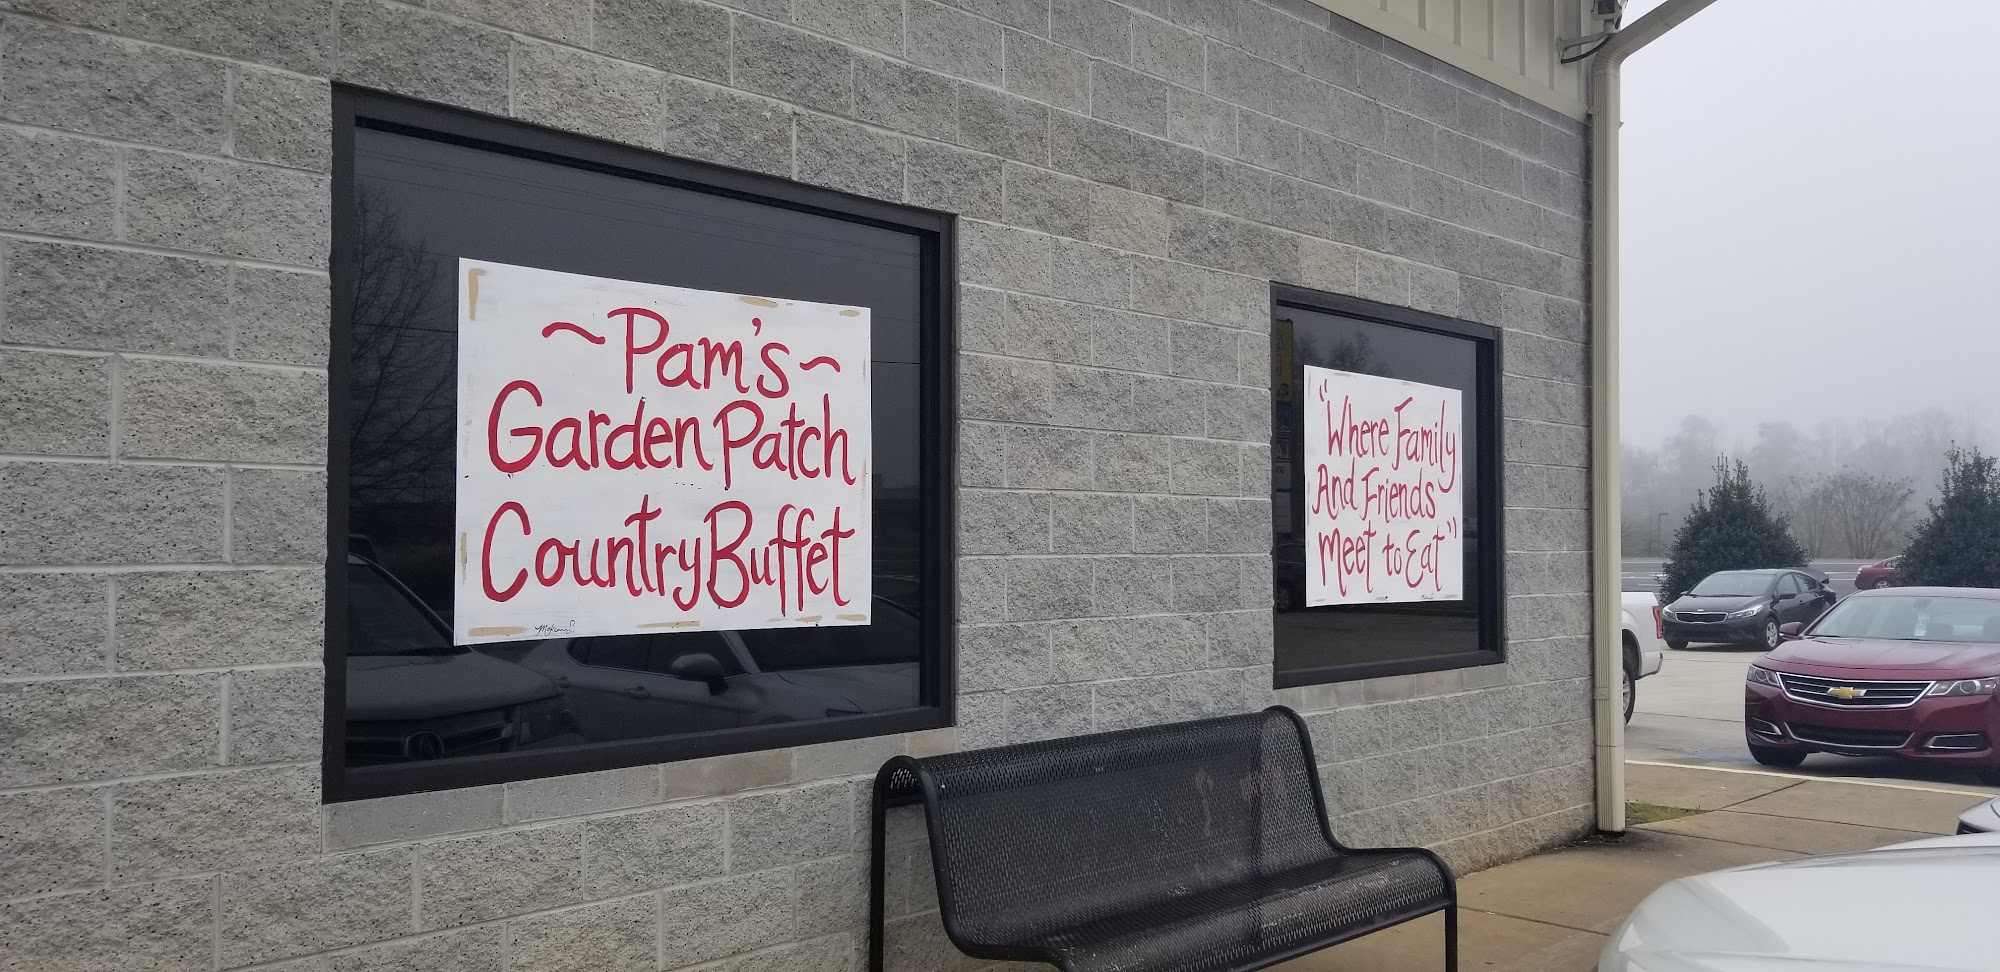 ~Pam's~
Garden Patch
Country Buffet
"Where Family
And Friends
Meet to Eat"